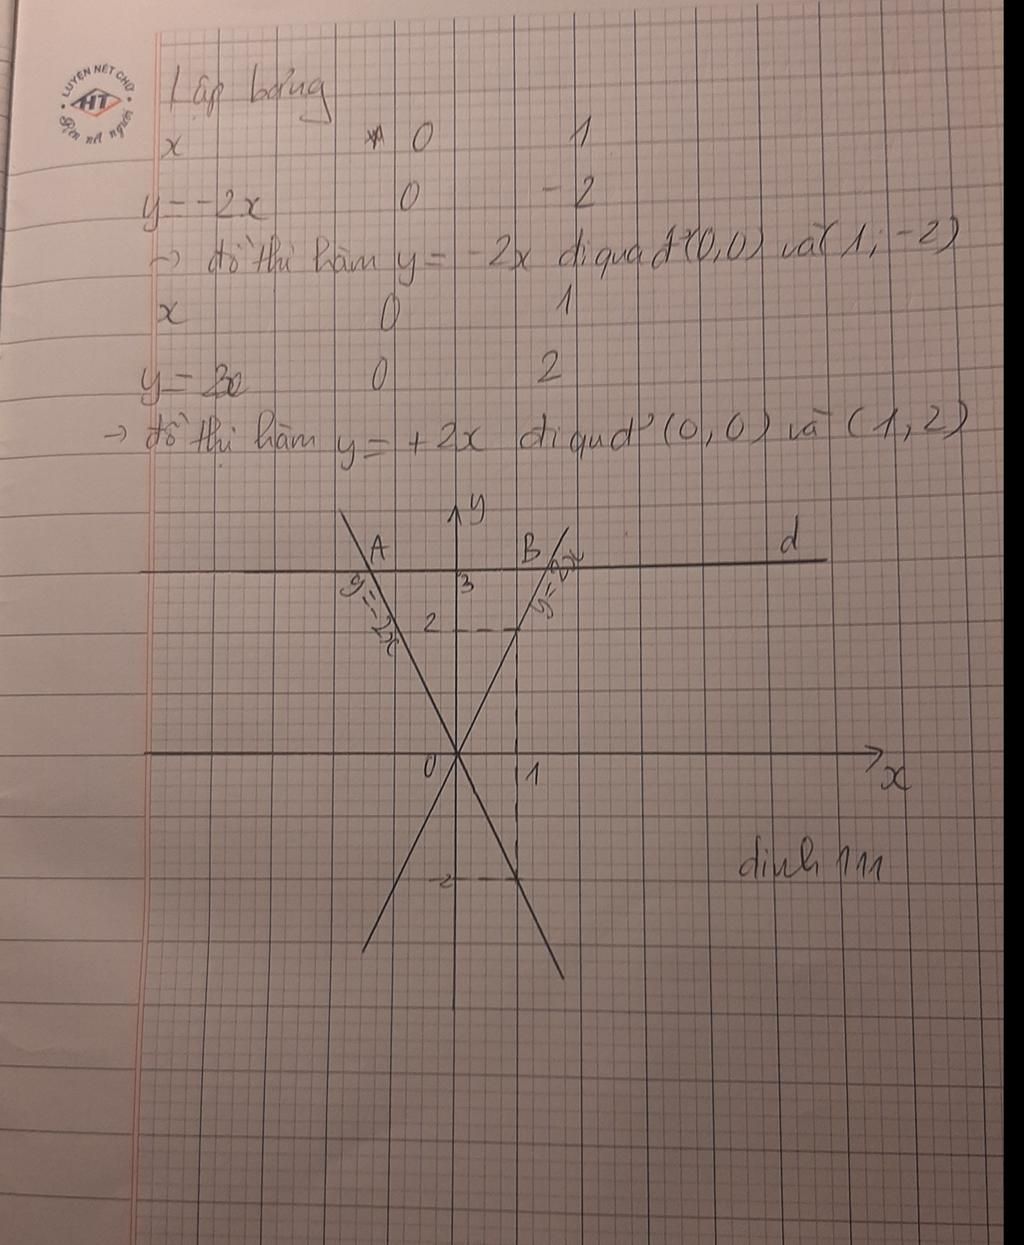 LUYỆN NÉT CHỮ
HT
Rèn nết người
Lập bảng
x 0 1
y = -2x 0 -2
→ đồ thị hàm y = -2x đi qua đ' (0,0) và (1; -2)
x 0 1
y = 2x 0 2
→ đồ thị hàm y = +2x đi qua đ' (0,0) và (1,2)
y
A B d
3
y=-2x y=2x
2
0 1 x
-2
dinh 111